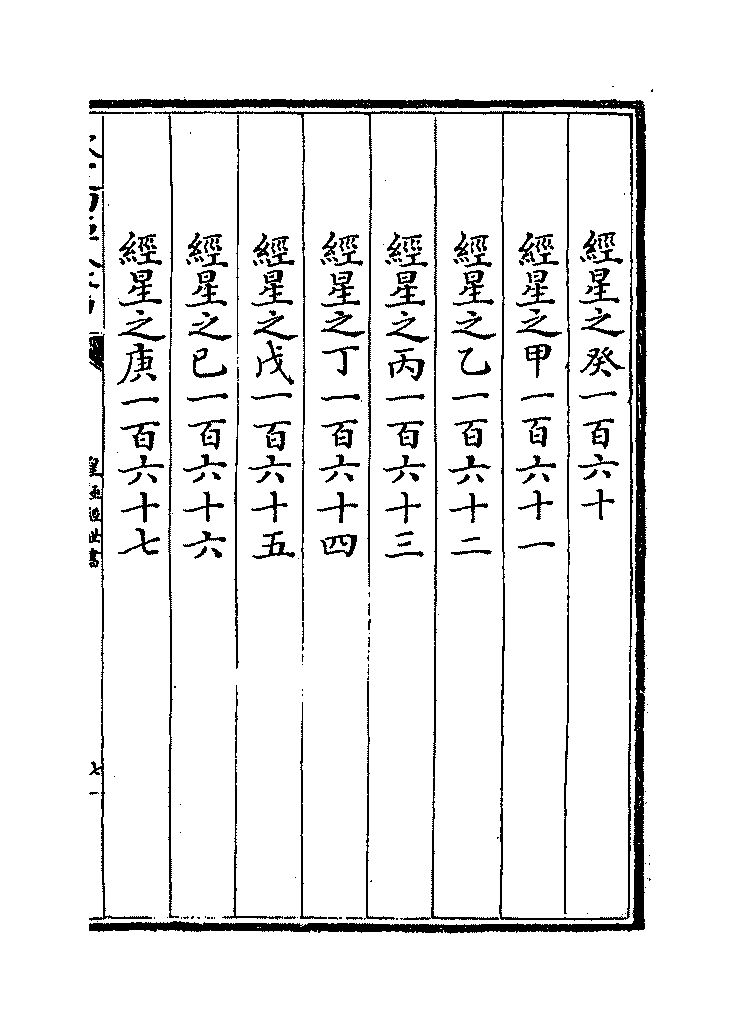 經星之癸一百六十
經星之甲一百六十一
經星之乙一百六十二
經星之丙一百六十三
經星之丁一百六十四
經星之戊一百六十五
經星之巳一百六十六
經星之庚一百六十七
皇極經世書
七